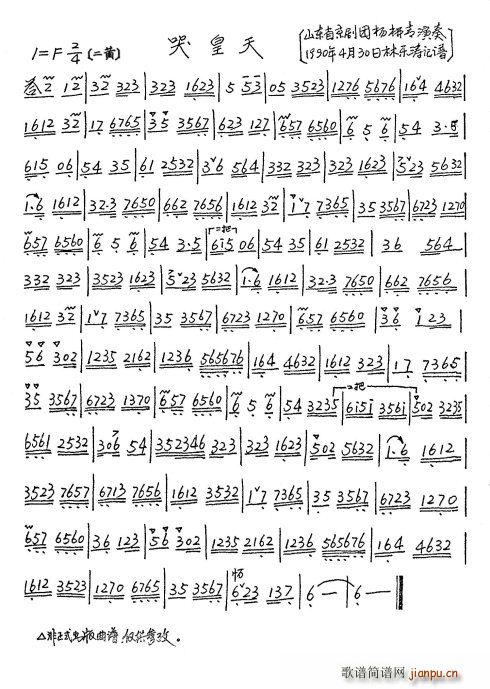 哭皇天
1=F 2/4 (二黄)
山东省京剧团杨柳青演奏
1990年4月30日林乐涛记谱
1612 32 | 17 6765 | 35 3567 | 623 127 | 657 6560 | 6 5 6 | 54 3·5
615 06 | 54 35 | 61 2532 | 36 564 | 332 323 | 323 1623 | 523 5632
1·6 1612 | 32·3 7650 | 662 7656 | 1612 32 | 17 7365 | 35 3567 | 6723 1270
657 6560 | 6 5 6 | 54 3·5 | 615 06 | 54 35 | 61 2532 | 36 564
332 323 | 3523 1623 | 523 5632 | 1·6 1612 | 32·3 7650 | 662 7656
1612 32 | 17 7365 | 35 3567 | 6723 1270 | 657 6560 | 36 123
56 302 | 1235 2162 | 1236 565676 | 164 4632 | 1612 323 | 17 7365
35 3567 | 6723 1370 | 657 6560 | 6 5 6 | 54 3235 | 6151 3561 | 502 3235
6561 2532 | 306 54 | 352346 323 | 323 1623 | 502 5632 | 1·6 1612
3523 7657 | 6713 7656 | 1612 3532 | 17 7365 | 35 3567 | 6723 1270
657 6560 | 36 123 | 56 302 | 1235 2162 | 1236 565676 | 164 4632
1612 3523 | 1270 6765 | 35 3567 | 623 137 | 6 — | 6 —
△非正式出版曲谱，仅供参改。
歌谱简谱网
jianpu.cn